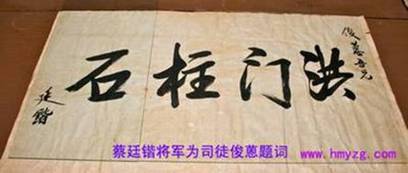 俊蔥吾兄
洪门柱石
廷鍇
蔡廷锴将军为司徒俊蔥题词 www.hmyzg.com